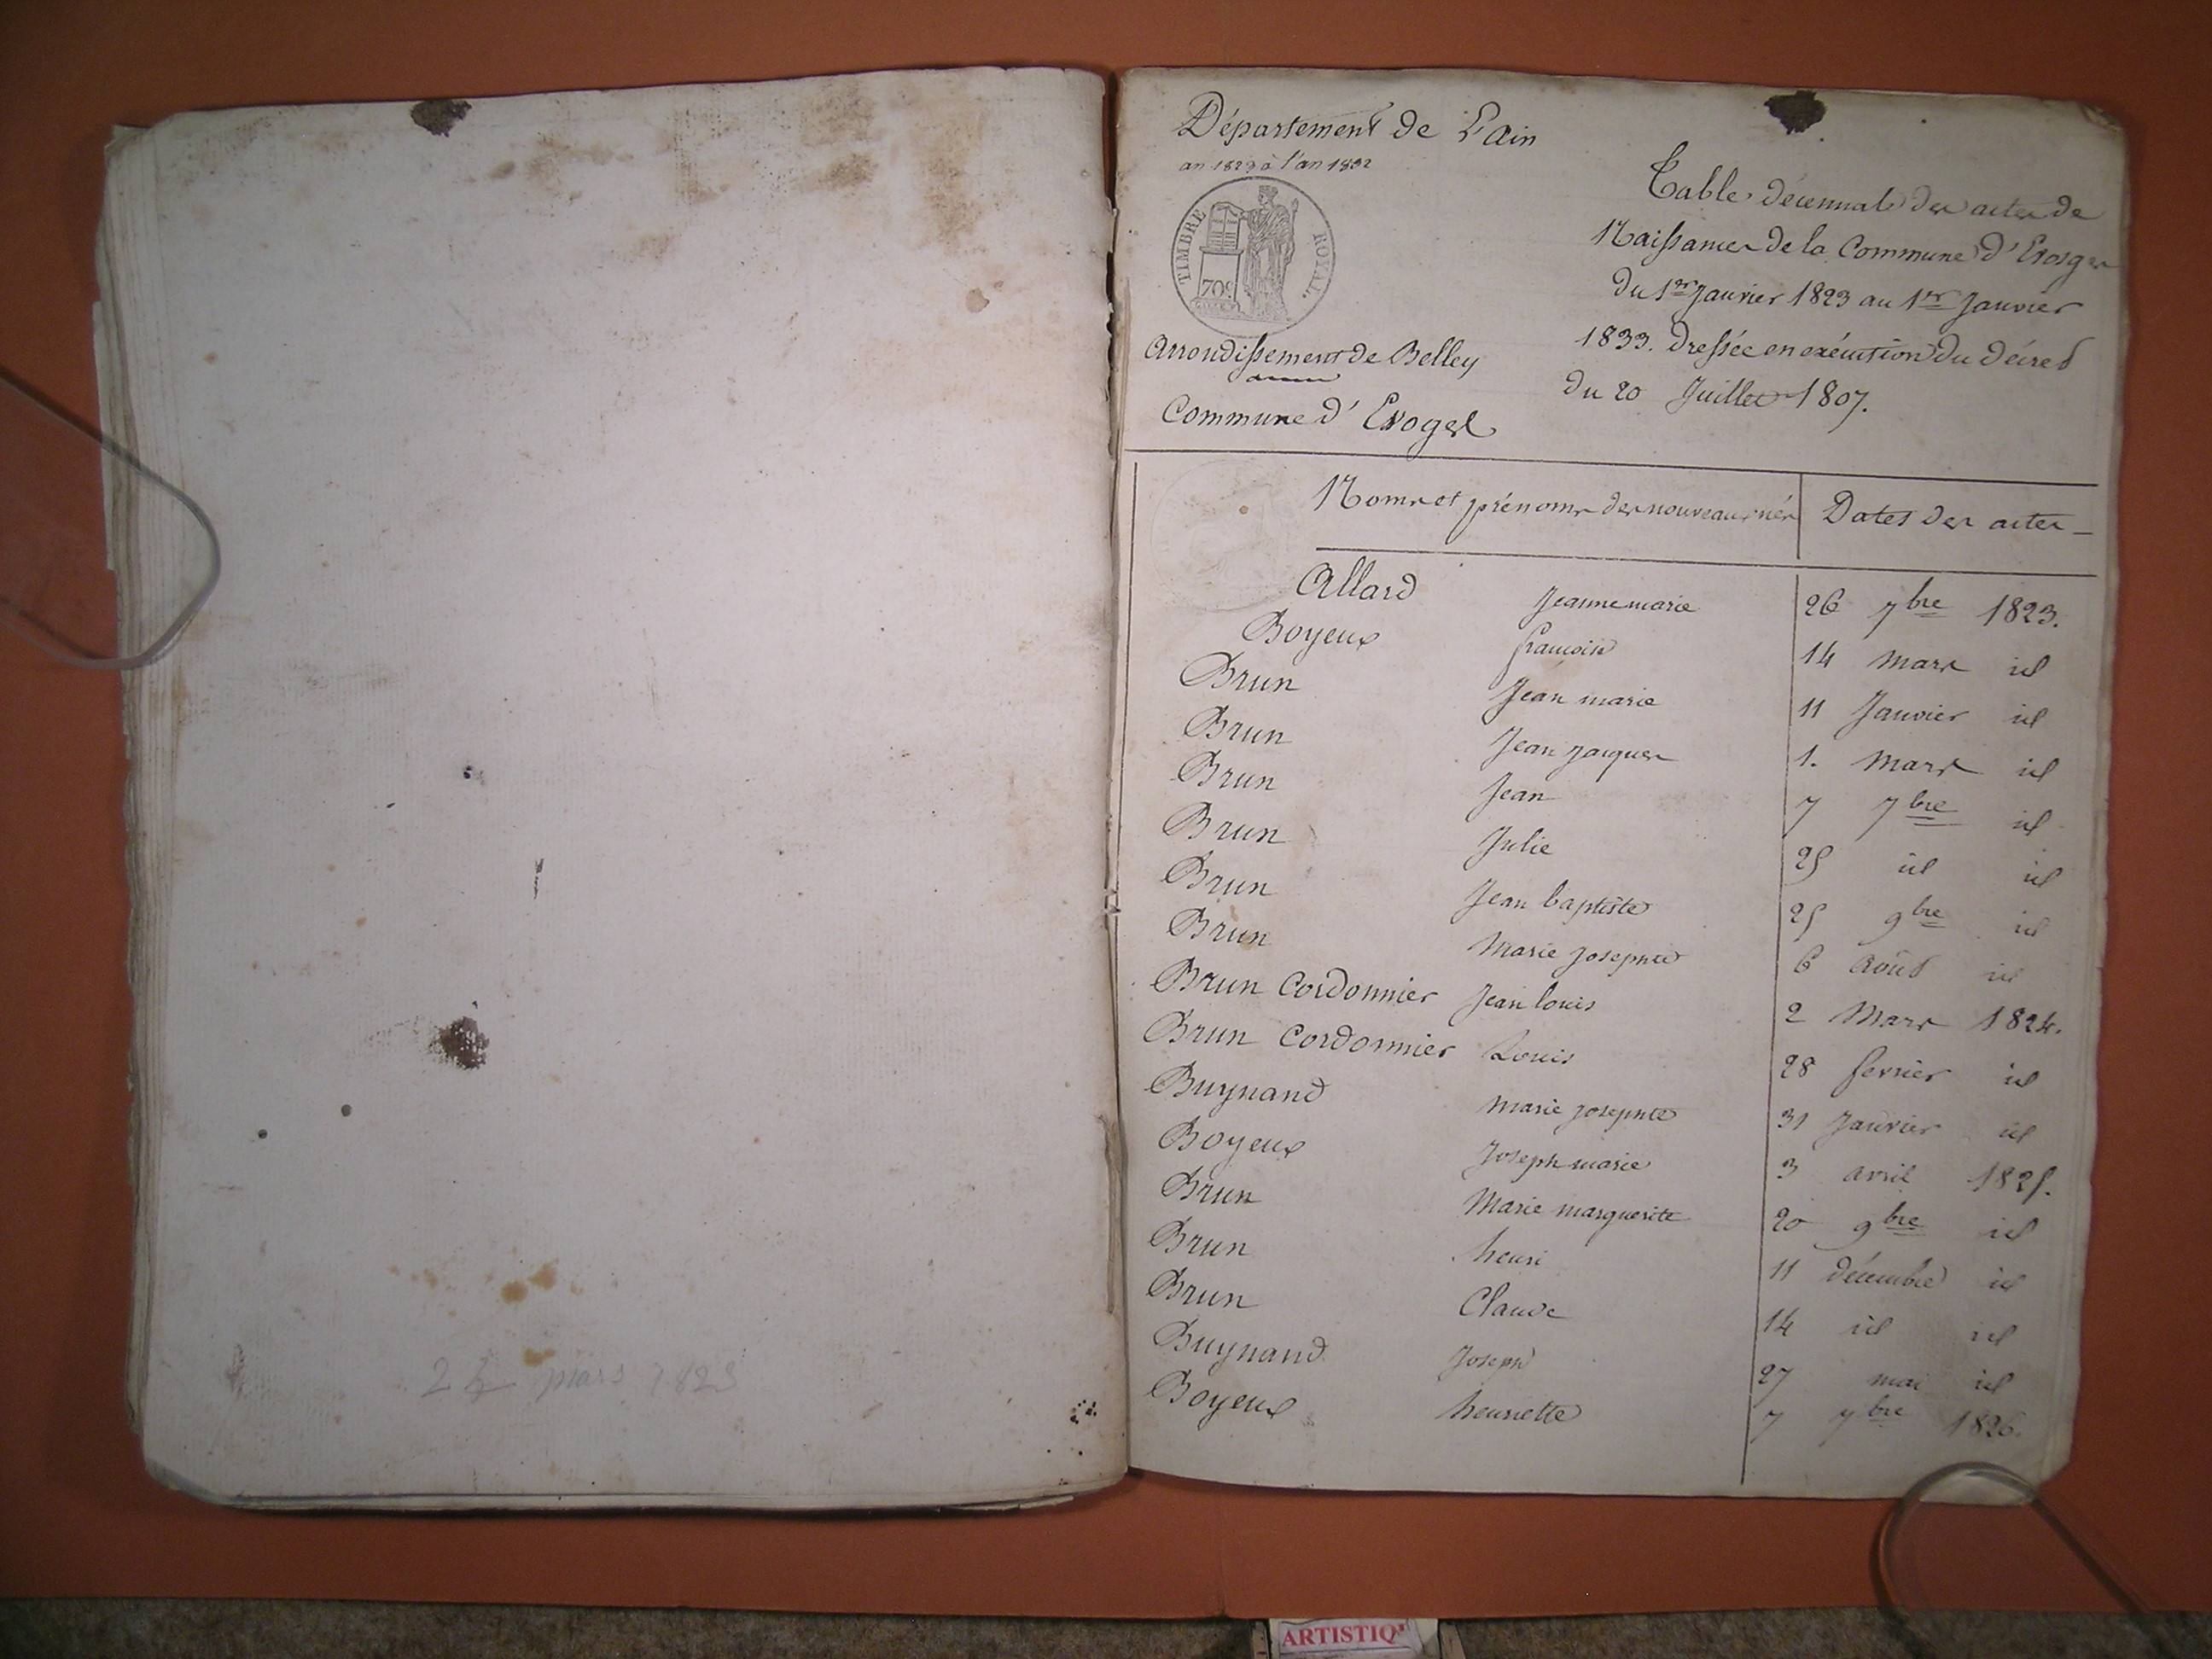 Département de L'ain
an 1823 à l'an 1832
TIMBRE ROYAL.
70c
Arrondissement de Belley
Commune d'Evoges
Table décennale des actes de
Naissances de la Commune d'Evosges
du 1er Janvier 1823 au 1er Janvier
1833. dressée en exécution du décret
du 20 Juillet 1807.
Noms et prénoms des nouveaux nés Dates des actes
Allard Jeanne marie 26 7bre 1823.
Boyeux françoise 14 mars id
Brun Jean marie 11 Janvier id
Brun Jean jacques 1. mars id
Brun Jean 7 7bre id
Brun Julie 25 id id
Brun Jean baptiste 25 9bre id
Brun Marie josephte 6 août id
Brun Cordonnier Jean louis 2 Mars 1824.
Brun Cordonnier Louis 28 fevrier id
Buynand marie josephte 31 Janvier id
Boyeux Joseph marie 3 avril 1825.
Brun Marie marguerite 20 9bre id
Brun henri 11 décembre id
Brun Claude 14 id id
Buynand Joseph 27 mai id
Boyeux henriette 7 7bre 1826.
mars
ARTISTIQ